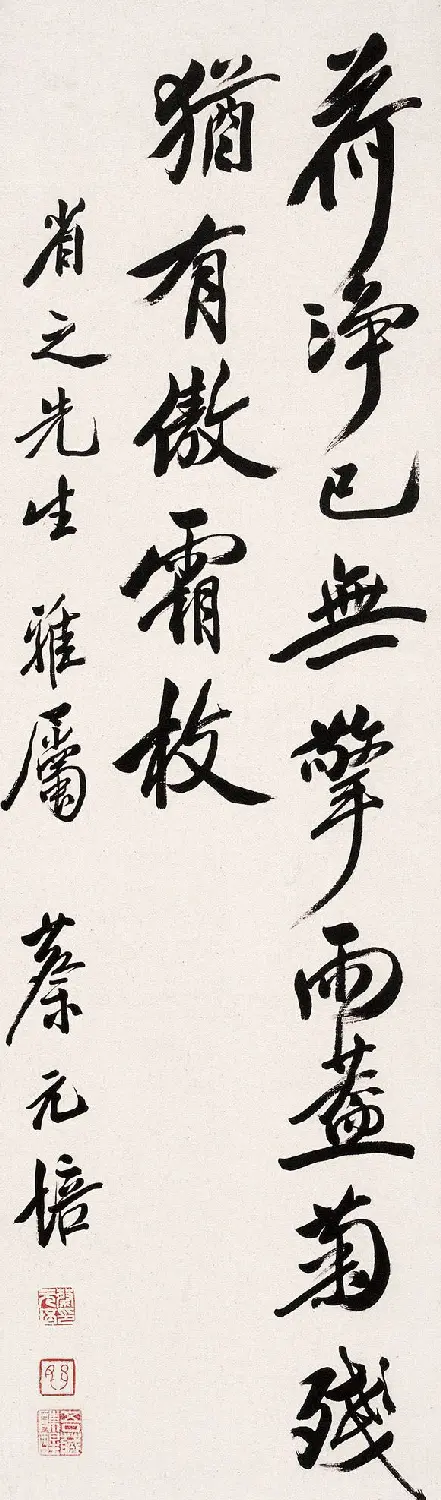 荷净已無擎雨蓋菊殘
猶有傲霜枝
省之先生雅屬
蔡元培